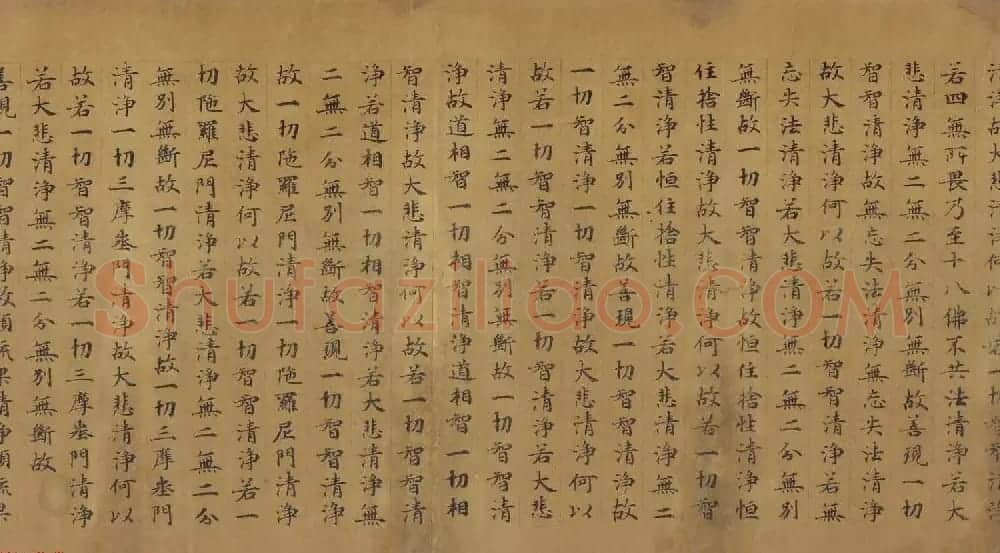 若四無所畏乃至十八佛不共法清淨若大
悲清淨無二無二分無別無斷故善現一切
智智清淨故無忘失法清淨無忘失法清淨
故大悲清淨何以故若一切智智清淨若無
忘失法清淨若大悲清淨無二無二分無別
無斷故一切智智清淨故恒住捨性清淨恒
住捨性清淨故大悲清淨何以故若一切智
智清淨若恒住捨性清淨若大悲清淨無二
無二分無別無斷故善現一切智智清淨故
一切智清淨一切智清淨故大悲清淨何以
故若一切智智清淨若一切智清淨若大悲
清淨無二無二分無別無斷故一切智智清
淨故道相智一切相智清淨道相智一切相
智清淨故大悲清淨何以故若一切智智清
淨若道相智一切相智清淨若大悲清淨無
二無二分無別無斷故善現一切智智清淨
故一切陁羅尼門清淨一切陁羅尼門清淨
故大悲清淨何以故若一切智智清淨若一
切陁羅尼門清淨若大悲清淨無二無二分
無別無斷故一切智智清淨故一切三摩地門
清淨一切三摩地門清淨故大悲清淨何以
故若一切智智清淨若一切三摩地門清淨
若大悲清淨無二無二分無別無斷故
善現一切智智清淨故預流果清淨預流果
Shufaziliao.COM